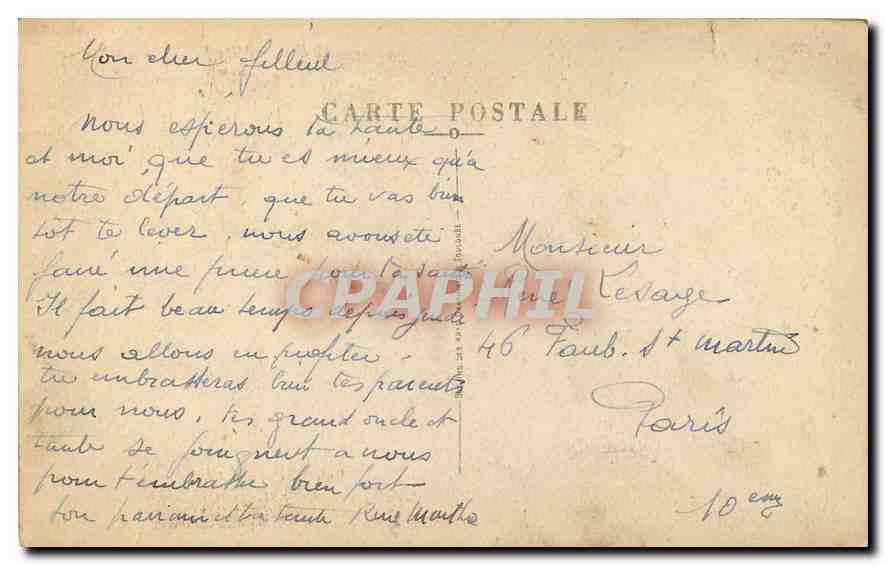 Mon cher filleul
CARTE POSTALE
Nous espérons ta tante
et moi que tu es mieux qu'a
notre départ, que tu vas bien
tôt te lever, nous avons été
faire une priere pour ta santé
Il fait beau temps depuis
nous allons en profiter.
tu embrasseras bien tes parents
pour nous, tes grand oncle et
tante se joignent a nous
pour t'embrasser bien fort
ton parrain et ta tante René Marthe
Monsieur
René Lesage
46 Faub. St Martin
Paris
10 eme
CPAPHIL